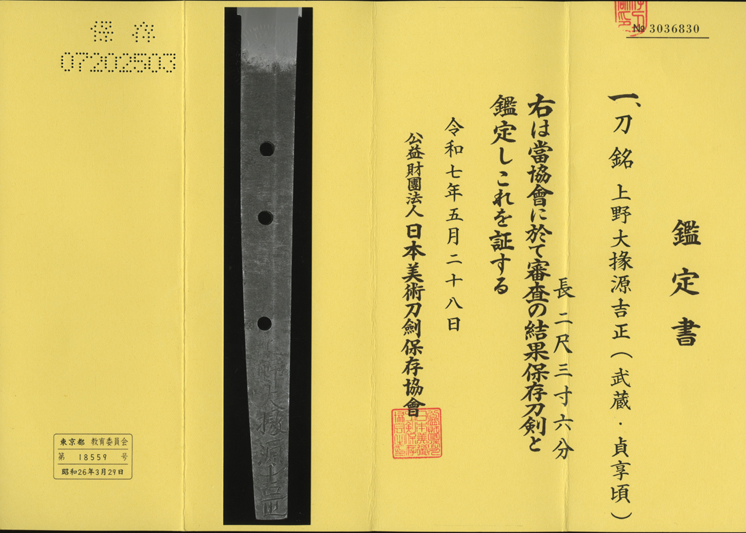 № 3036830
鑑定書
一、刀 銘 上野大掾源吉正(武蔵・貞享頃)
長 二尺三寸六分
右は當協會に於て審査の結果保存刀剣と
鑑定しこれを証する
令和七年五月二十八日
公益財團法人 日本美術刀劍保存協會
保存
07202503
東京都 教育委員会
第 18559 号
昭和26年3月29日